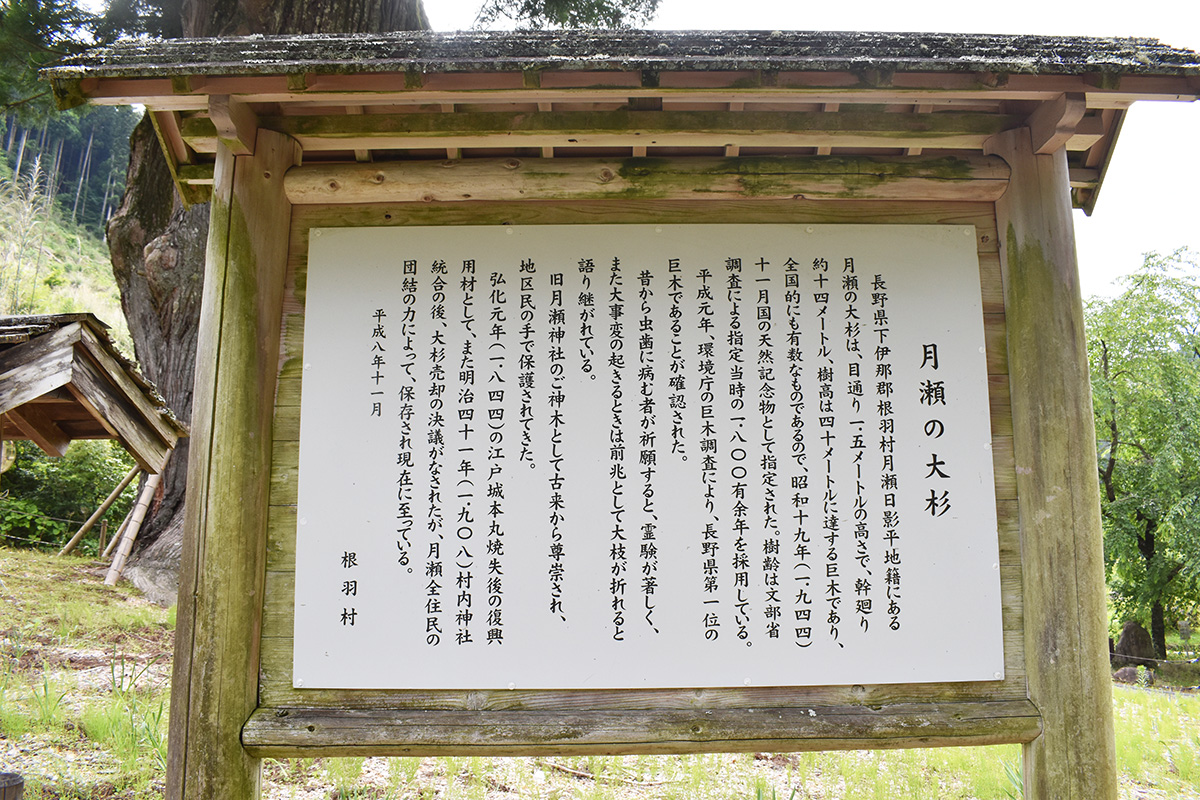 月瀬の大杉
長野県下伊那郡根羽村月瀬日影平地籍にある
月瀬の大杉は、目通り一・五メートルの高さで、幹廻り
約十四メートル、樹高は四十メートルに達する巨木であり、
全国的にも有数なものであるので、昭和十九年(一、九四四)
十一月国の天然記念物として指定された。樹齢は文部省
調査による指定当時の一、八〇〇有余年を採用している。
平成元年、環境庁の巨木調査により、長野県第一位の
巨木であることが確認された。
昔から虫歯に病む者が祈願すると、霊験が著しく、
また大事変の起きるときは前兆として大枝が折れると
語り継がれている。
旧月瀬神社のご神木として古来から尊崇され、
地区民の手で保護されてきた。
弘化元年(一、八四四)の江戸城本丸焼失後の復興
用材として、また明治四十一年(一、九〇八)村内神社
統合の後、大杉売却の決議がなされたが、月瀬全住民の
団結の力によって、保存され現在に至っている。
平成八年十一月
根羽村